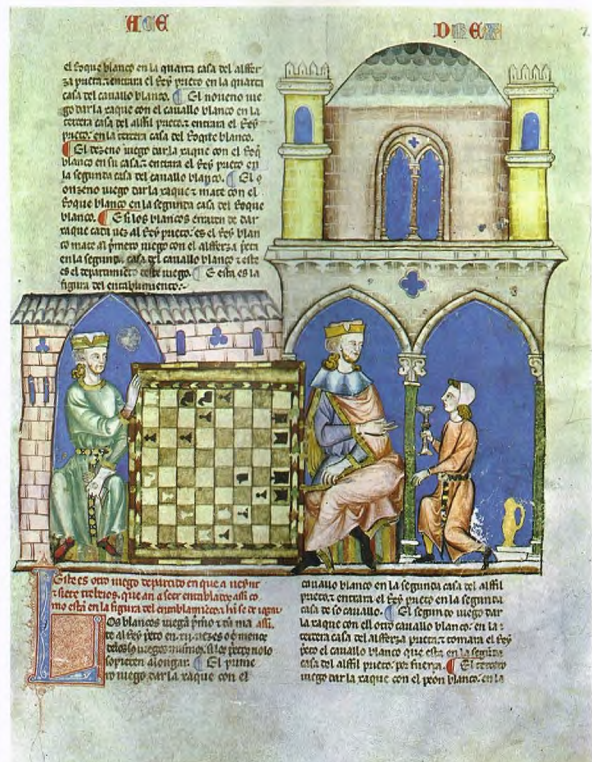 ACE
DREZ
el Roque blanco en la quarta casa del alffer
za prieta. τ entrara el Rey prieto en la quarta
casa del cauallo blanco. El noueno iue
go dar la xaque con el cauallo blanco en la
tercera casa del alffil prieto. τ entrara el Rey
prieto. en la tercera casa del Roque blanco.
El dezeno iuego dar la xaque con el Roq
blanco en su casa. τ entrara el Rey prieto en
la segunda casa del cauallo blanco. El o
onzeno iuego dar la xaque τ mate con el
Roque blanco en la segunda casa del Roque
blanco. E si los blancos erraren de dar
xaque cada uez al Rey prieto. es el Rey blan
co mate al primero iuego con el alfferza prieta
en la segunda casa del cauallo blanco τ este
es el departimiento deste iuego. E esta es la
figura del entablamiento.
Este es otro iuego departido en que a ueynt
τ siete trebeios. que an a seer entablados assi co
mo estan en la figura del entablamiento. τ an se de iogar
Los blancos iuegan primero τ dan mate
al Rey prieto en
de los sus iuegos mismos. si los prietos nolo
sopieren alongar. El prime
ro iuego dar la xaque con el
cauallo blanco en la segunda casa del alffil
prieto. τ entrara el Rey prieto en la segunda
casa de so cauallo. El segundo iuego dar
la xaque con ell otro cauallo blanco. en la
tercera casa del alfferza prieta. τ tomara el Rey
prieto el cauallo blanco que esta en la segunda
casa del alffil prieto. por fuerça. El tercero
iuego dar la xaque con el peon blanco. en la